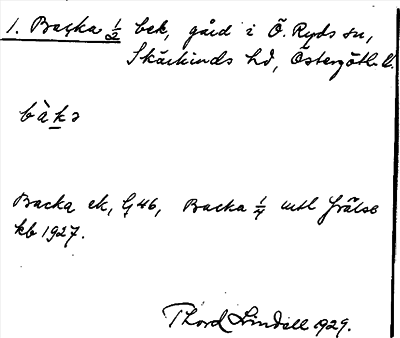 1. Backa 1/2 bek, gård i Ö. Ryds sn,
Skärkinds hd, Östergötl. l.
bàkə
Backa ek, G 46, Backa 1/4 mtl frälse
kb 1927.
Thord Lindell 1929.